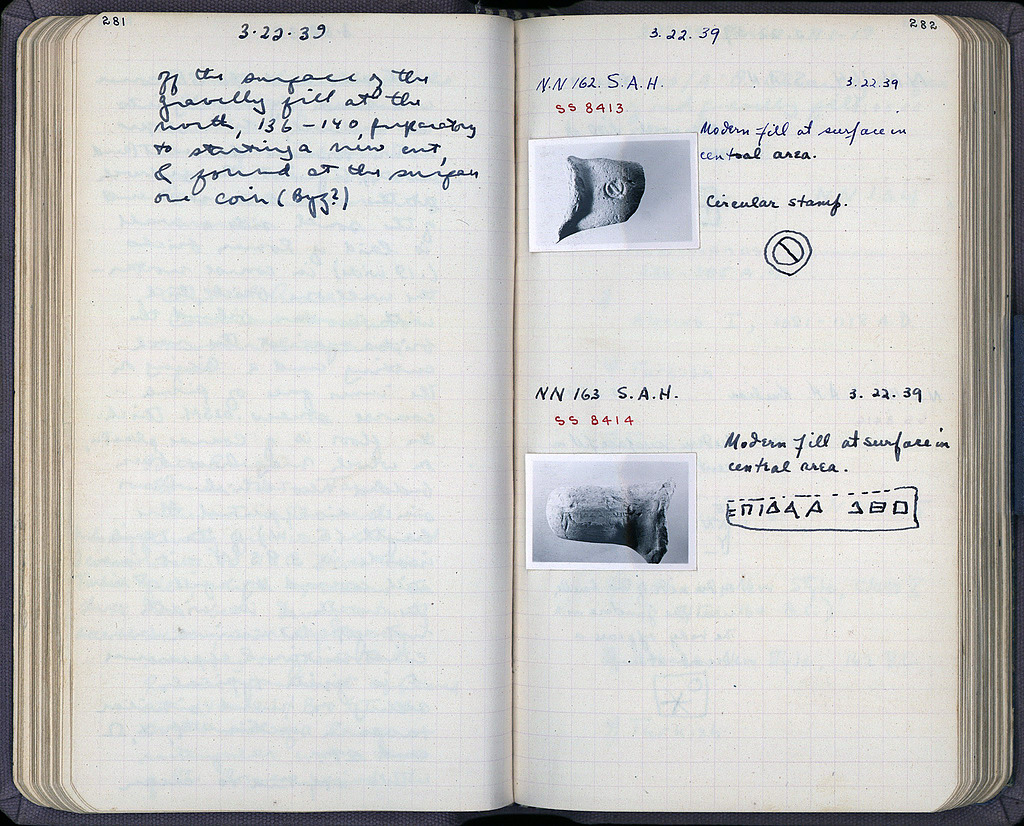 281
3.22.39
off the surface of the
gravelly fill at the
north, 136-140, preparatory
to starting a new cut,
& found at the surface
one coin (Byz?)
282
3.22.39
NN 162. S.A.H. 3.22.39
SS 8413
Modern fill at surface in
central area.
Circular stamp.
NN 163 S.A.H. 3.22.39
SS 8414
Modern fill at surface in
central area.